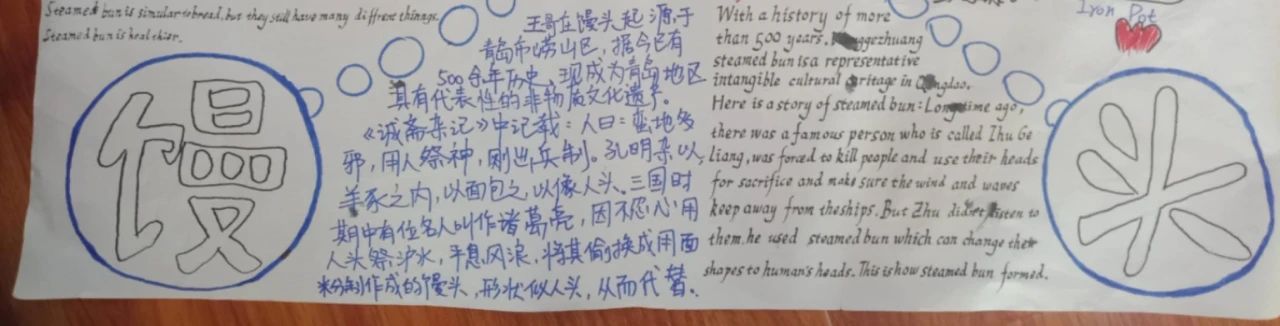 Steamed bun is simular to bread, but they still have many diffrent thinngs.
Steamed bun is healthier.
馒
王哥庄馒头起源于
青岛市崂山区，据今已有
500余年历史，现成为青岛地区
具有代表性的非物质文化遗产。
《诚斋杂记》中记载：人曰：蛮地多
邪，用人祭神，则出兵制。孔明杂以
羊豕之内，以面包之，以像人头。三国时
期中有位名人叫作诸葛亮，因不忍心用
人头祭泸水，平息风浪，将其偷换成用面
粉制作成的馒头，形状似人头，从而代替.
With a history of more
than 500 years. ggezhuang
steamed bun is a representative
intangible cultural eritage in Qingdao.
Here is a story of steamed bun: Long time ago,
there was a famous person who is called Zhu Ge
Liang, was forced to kill people and use their heads
for sacrifice and make sure the wind and waves
keep away from theships. But Zhu didn't listen to
them. he used steamed bun which can change their
shapes to human's heads. This is how steamed bun formed.
Iron Pot
米